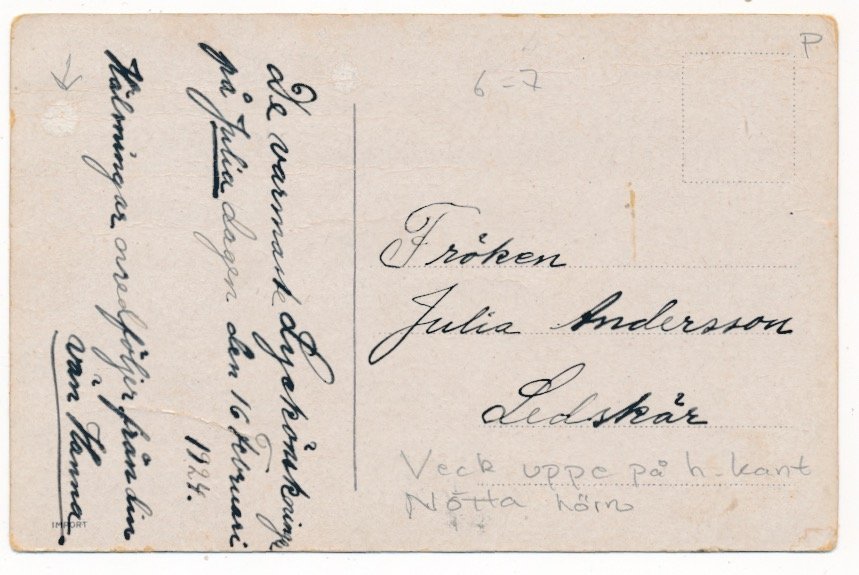 De varmaste Lyckönskningar
på Julia dagen den 16 Februari
1924.
Hälsningar medföljer från din
vän Hanna.
IMPORT
P
6-7
Fröken
Julia Andersson
Ledskär
Veck uppe på h-kant
Nötta hörn